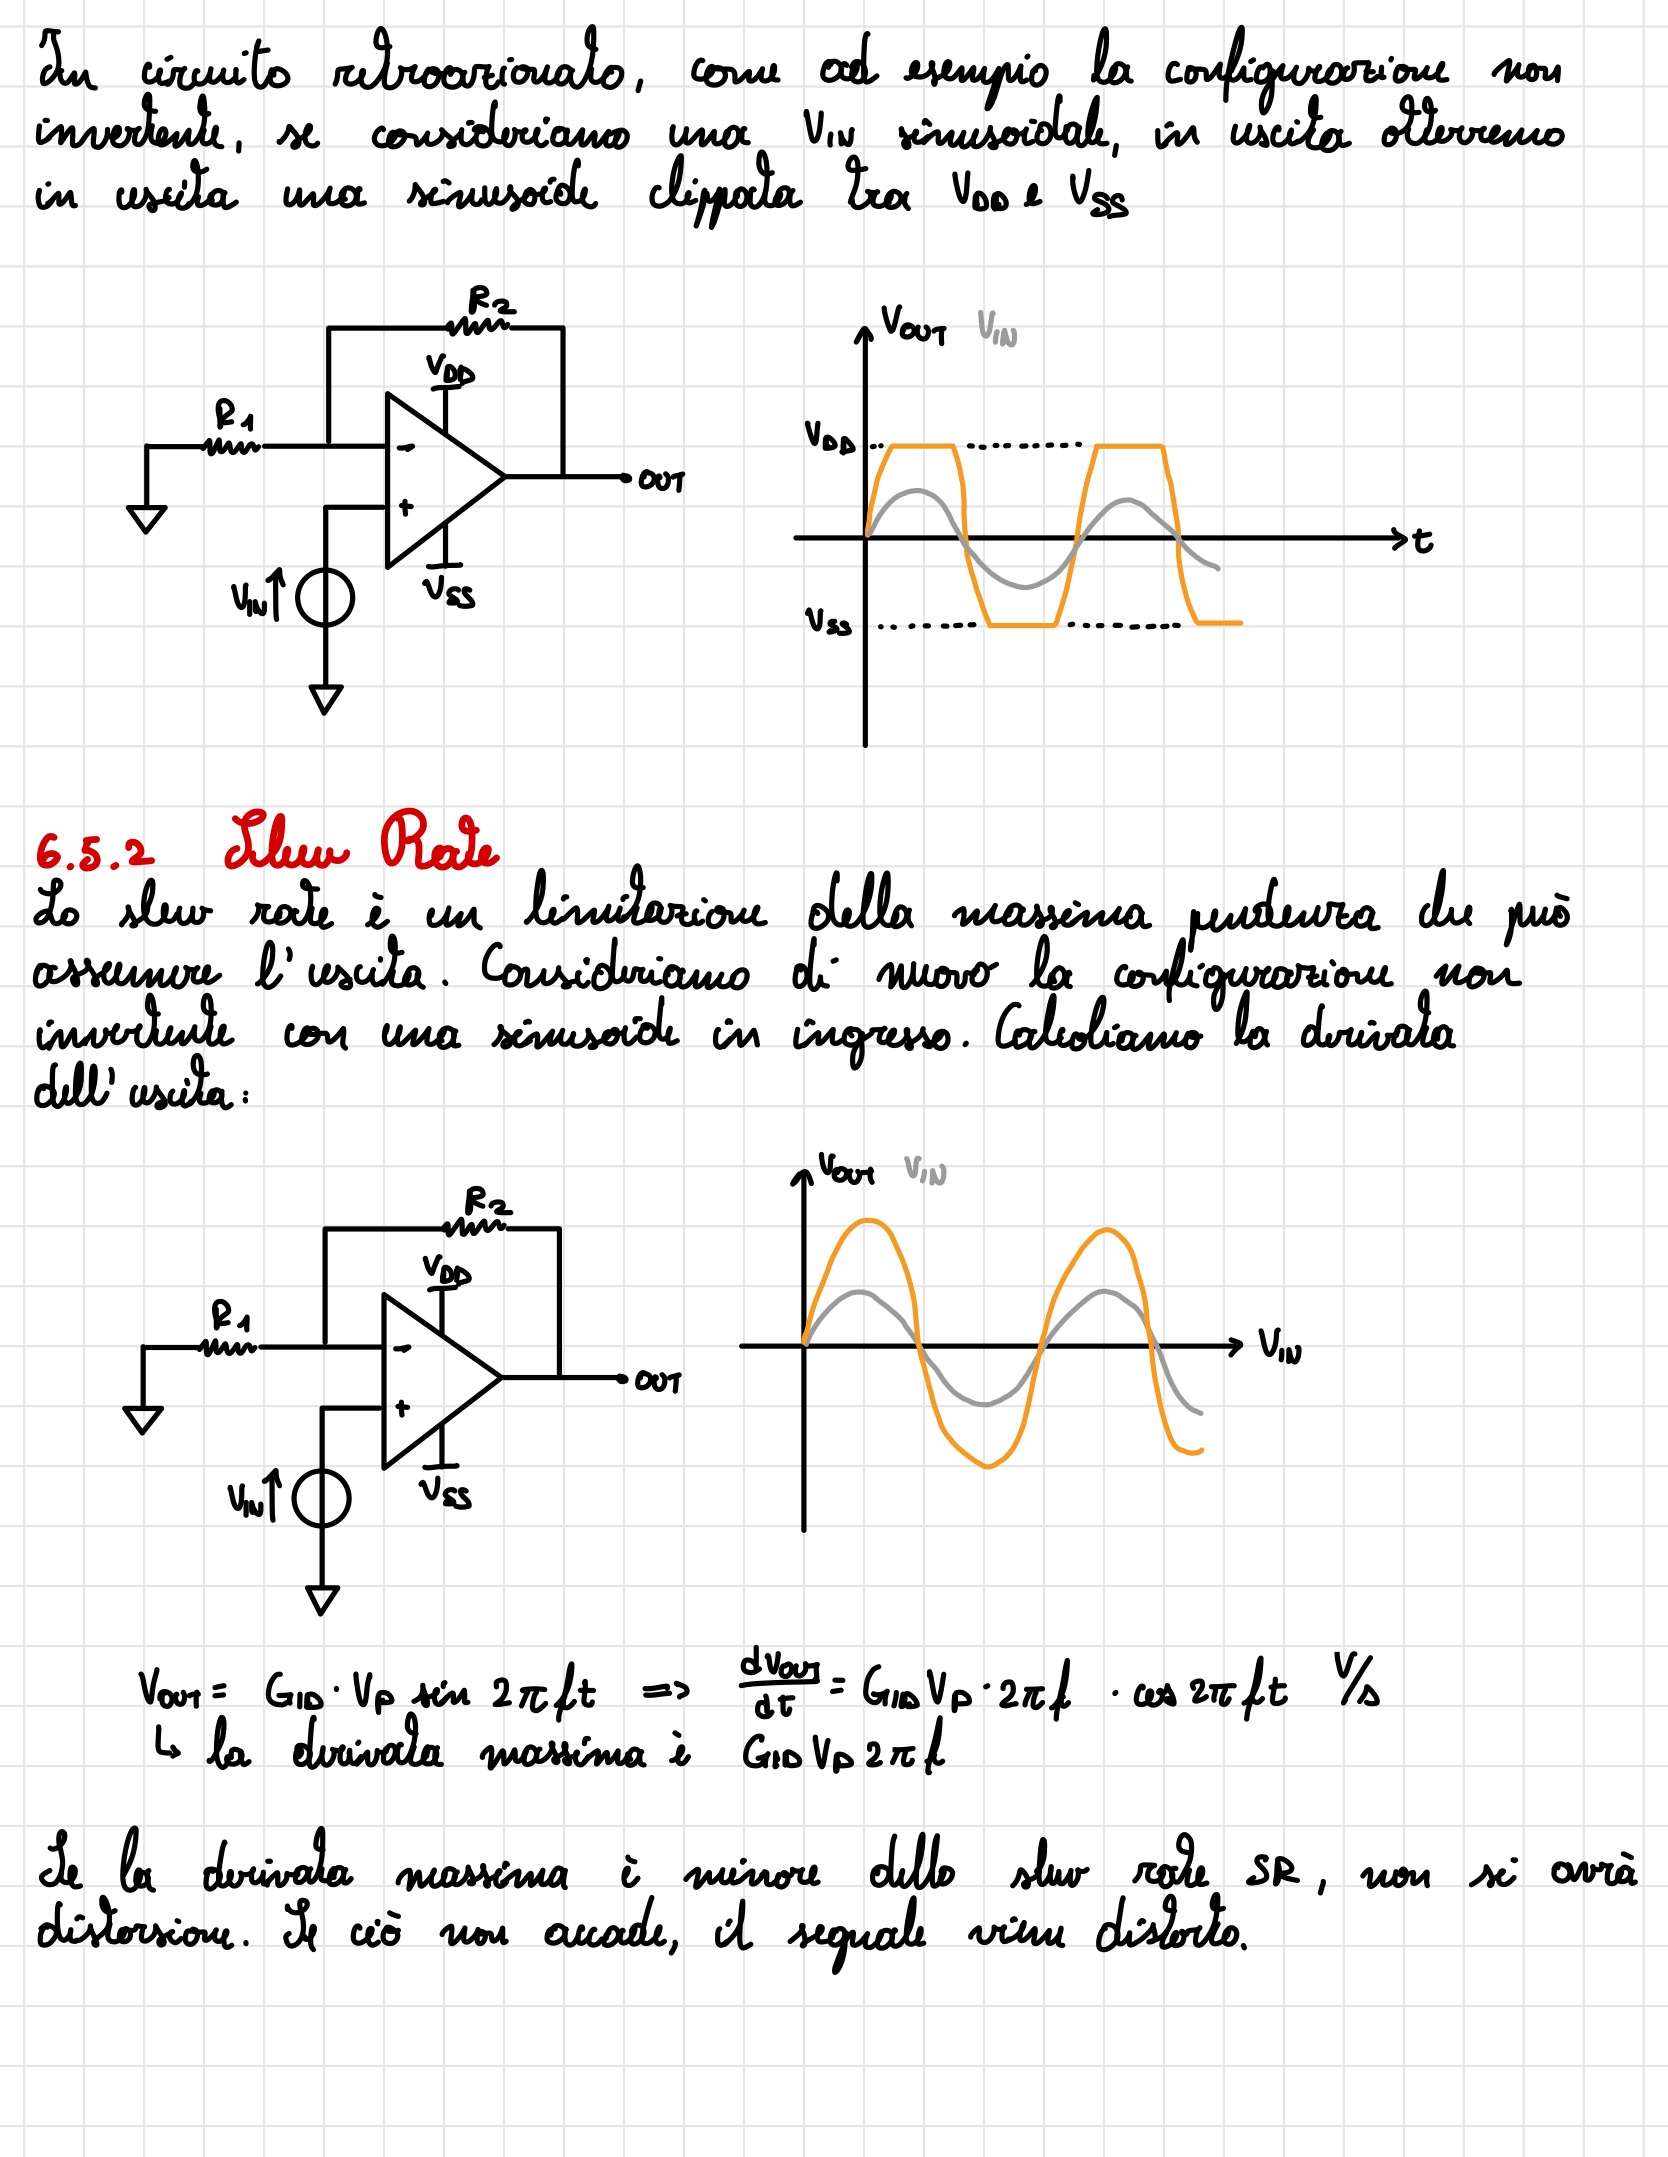 In circuito retroazionato, come ad esempio la configurazione non
invertente, se consideriamo una V_IN sinusoidale, in uscita otterremo
in uscita una sinusoide clippata tra V_DD e V_SS
R2
V_DD
R1
-
+
OUT
V_IN
V_SS
V_OUT V_IN
V_DD
t
V_SS
6.5.2 Slew Rate
Lo slew rate è un limitazione della massima pendenza che può
assumere l'uscita. Consideriamo di nuovo la configurazione non
invertente con una sinusoide in ingresso. Calcoliamo la derivata
dell'uscita:
R2
V_DD
R1
-
+
OUT
V_IN
V_SS
V_OUT V_IN
V_IN
V_OUT = G_ID · V_P sin 2πft => dV_OUT/dt = G_ID V_P · 2πf · cos 2πft V/s
↳ la derivata massima è G_ID V_P 2πf
Se la derivata massima è minore dello slew rate SR, non si avrà
distorsione. Se ciò non accade, il segnale viene distorto.